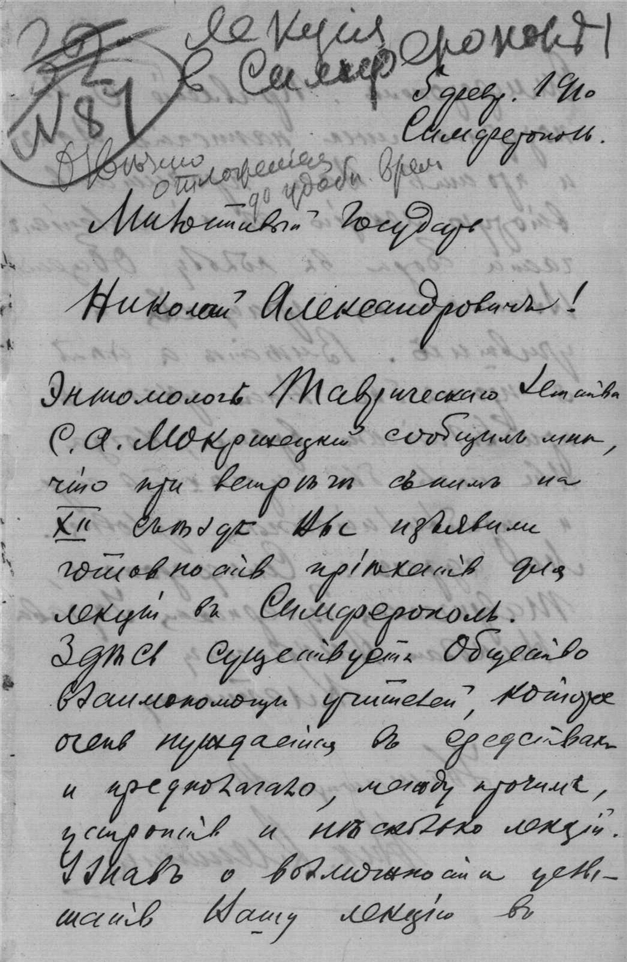 лекція
в Симферополѣ
№ 87
5 февр. 1910
Симферополь.
отложенія
до удобн. врем.
Милостивый Государь
Николай Александровичъ!
Энтомологъ Таврическаго Земства
С. А. Мокржецкій сообщилъ мнѣ,
что при встрѣчѣ съ нимъ на
XII съѣздѣ Вы изъявили
готовность пріѣхать для
лекціи въ Симферополь.
Здѣсь существуетъ Общество
взаимопомощи учителей, которое
очень нуждается въ средствахъ
и предполагало, между прочимъ,
устроить и нѣсколько лекцій.
Узнавъ о возможности услы-
шать Вашу лекцію въ